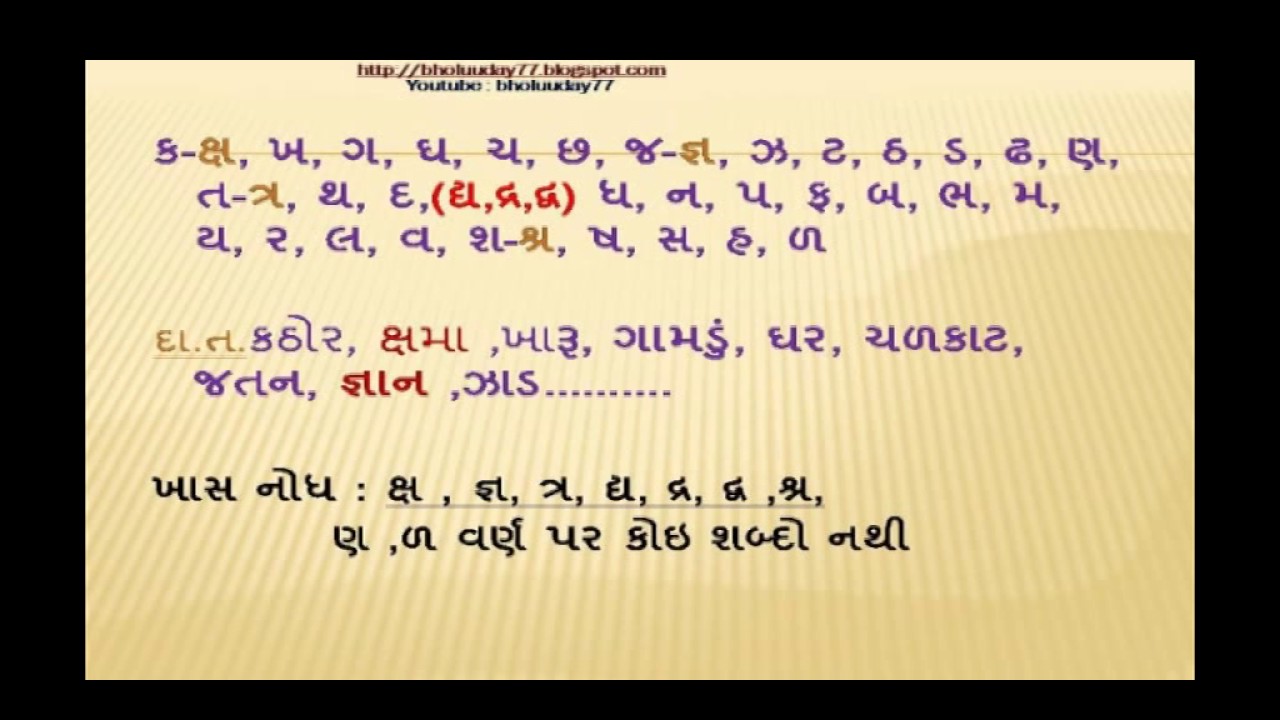 http://bholuuday77.blogspot.com
Youtube : bholuuday77
ક-ક્ષ, ખ, ગ, ઘ, ચ, છ, જ-જ્ઞ, ઝ, ટ, ઠ, ડ, ઢ, ણ,
ત-ત્ર, થ, દ,(દ્ય,દ્ર,દ્વ) ધ, ન, પ, ફ, બ, ભ, મ,
ય, ર, લ, વ, શ-શ્ર, ષ, સ, હ, ળ
દા.ત.કઠોર, ક્ષમા ,ખારૂ, ગામડું, ઘર, ચળકાટ,
જતન, જ્ઞાન ,ઝાડ..........
ખાસ નોધ : ક્ષ , જ્ઞ, ત્ર, દ્ય, દ્ર, દ્વ ,શ્ર,
ણ ,ળ વર્ણ પર કોઇ શબ્દો નથી